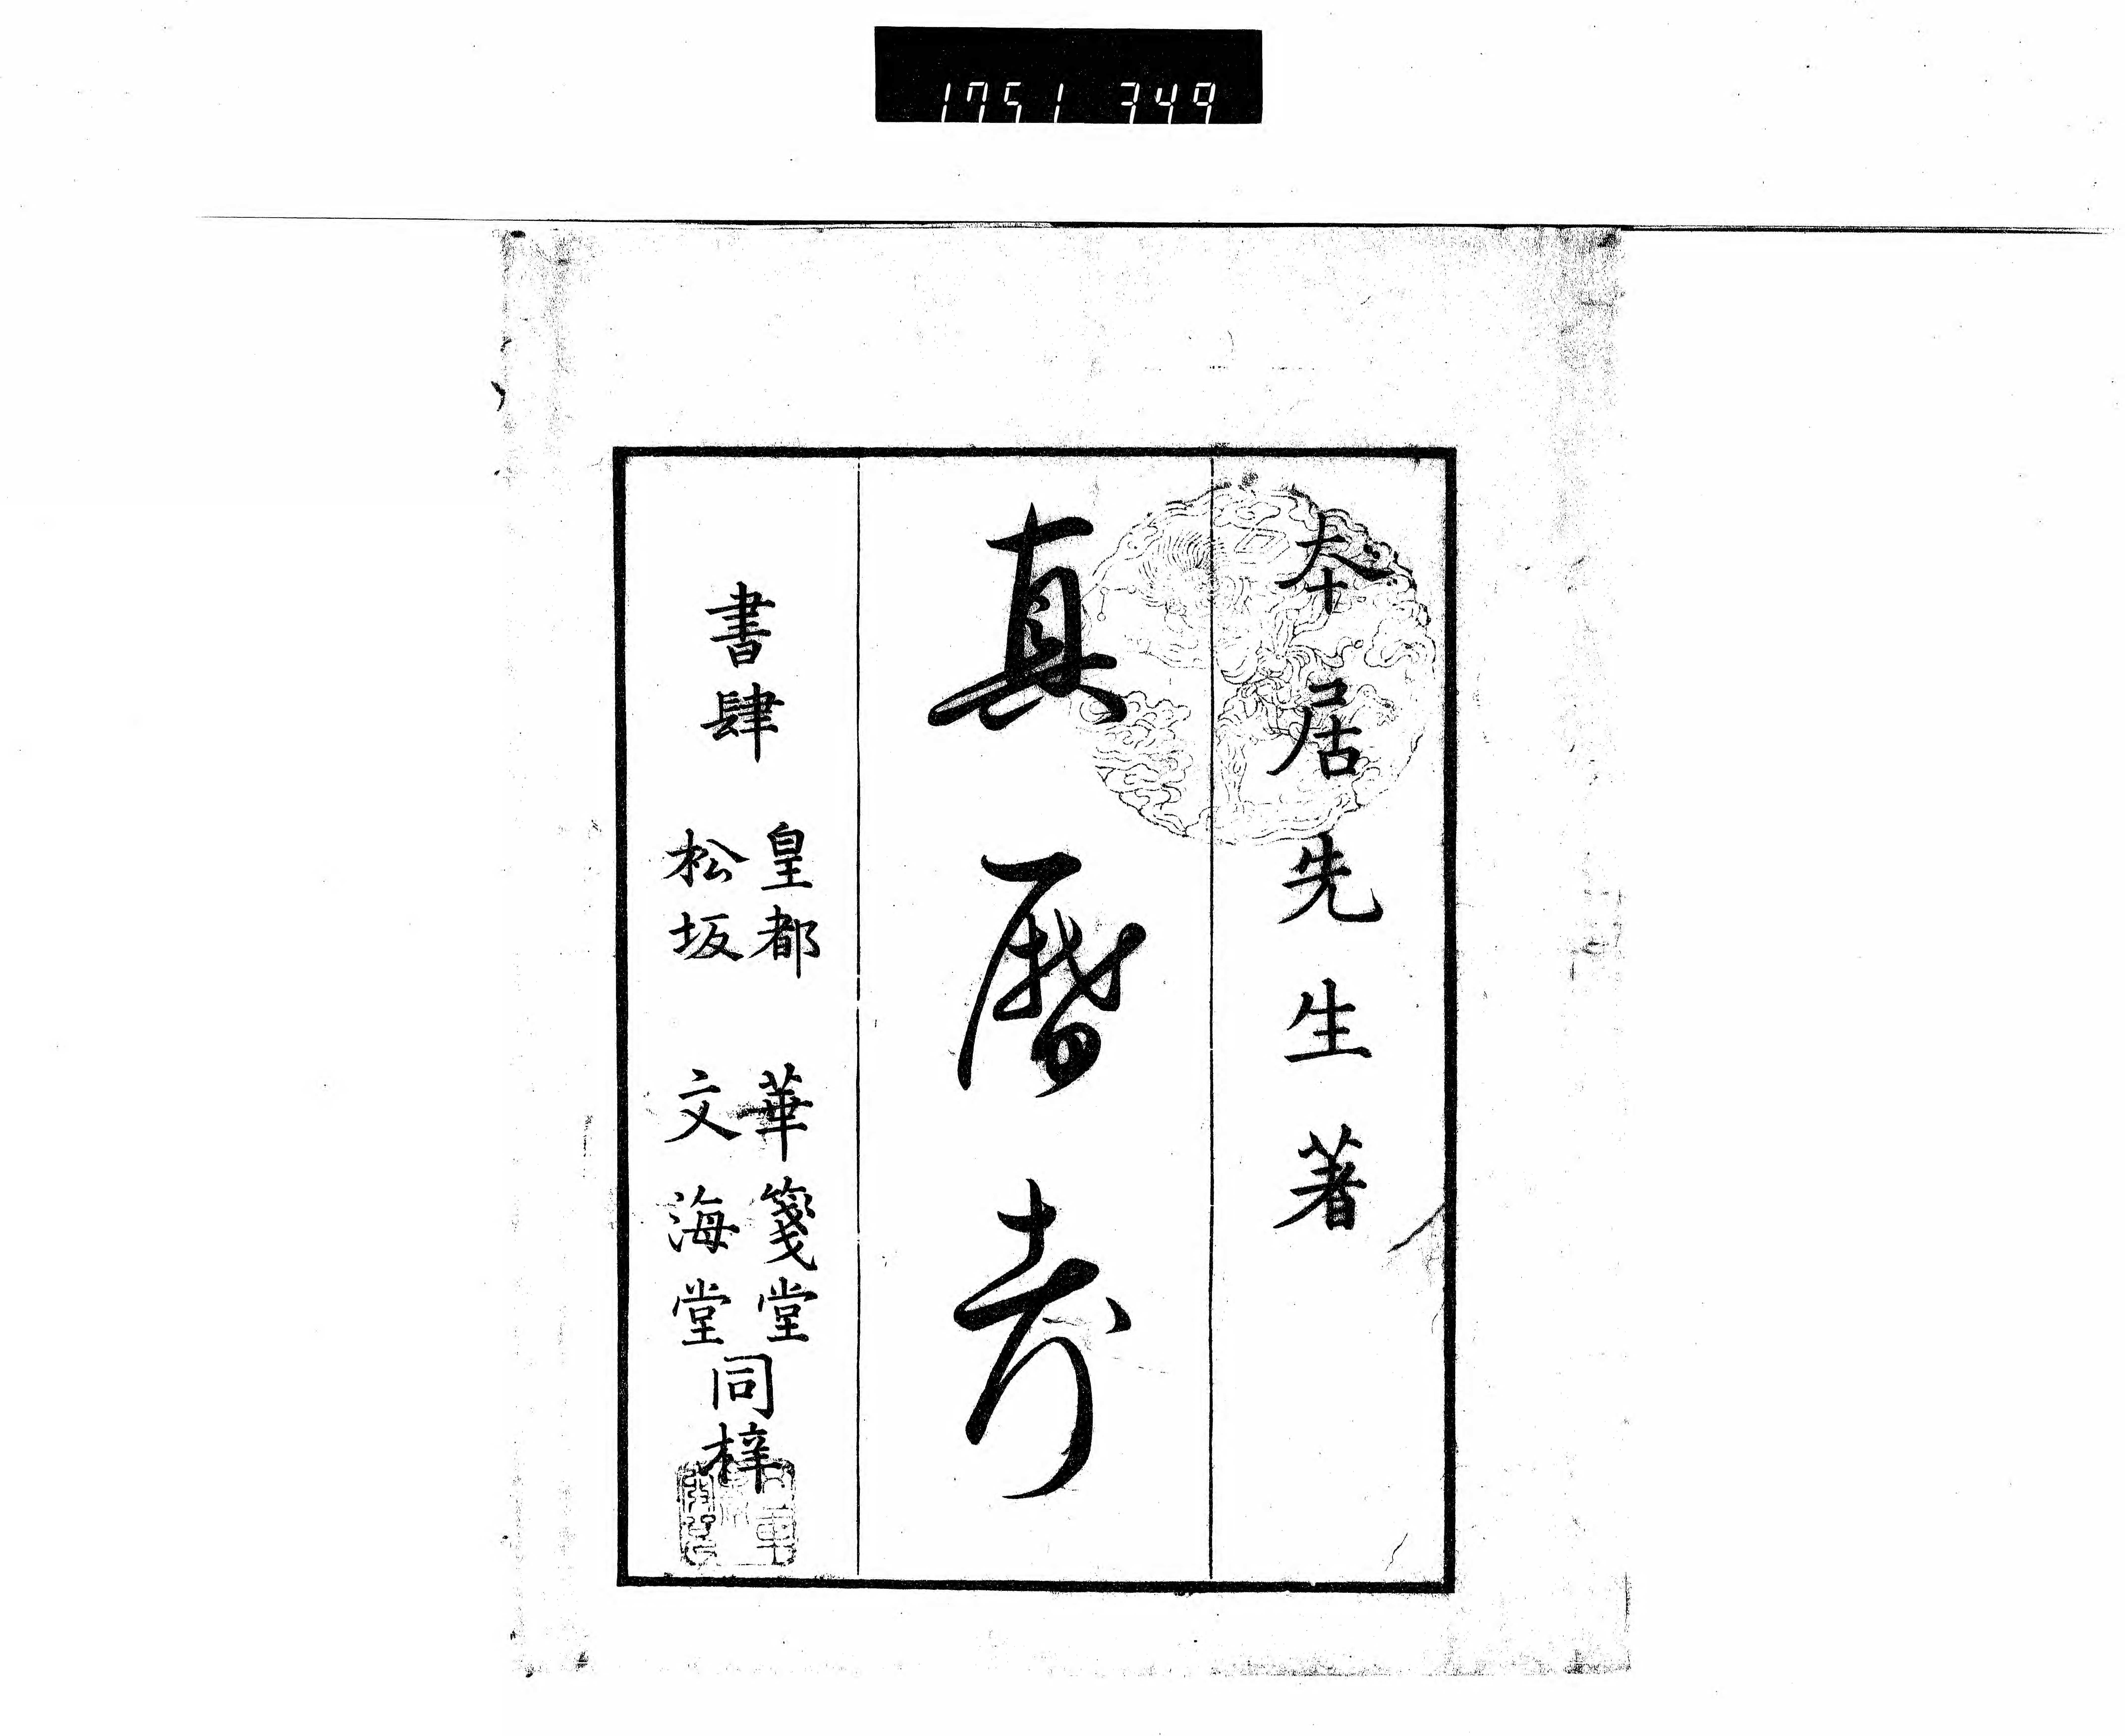 1751 349
夲居先生著
真暦考
書肆
皇都 華箋堂
松坂 文海堂
同梓